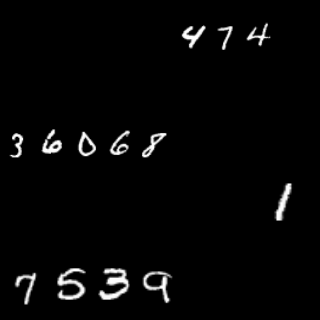 474
36068
1
7539